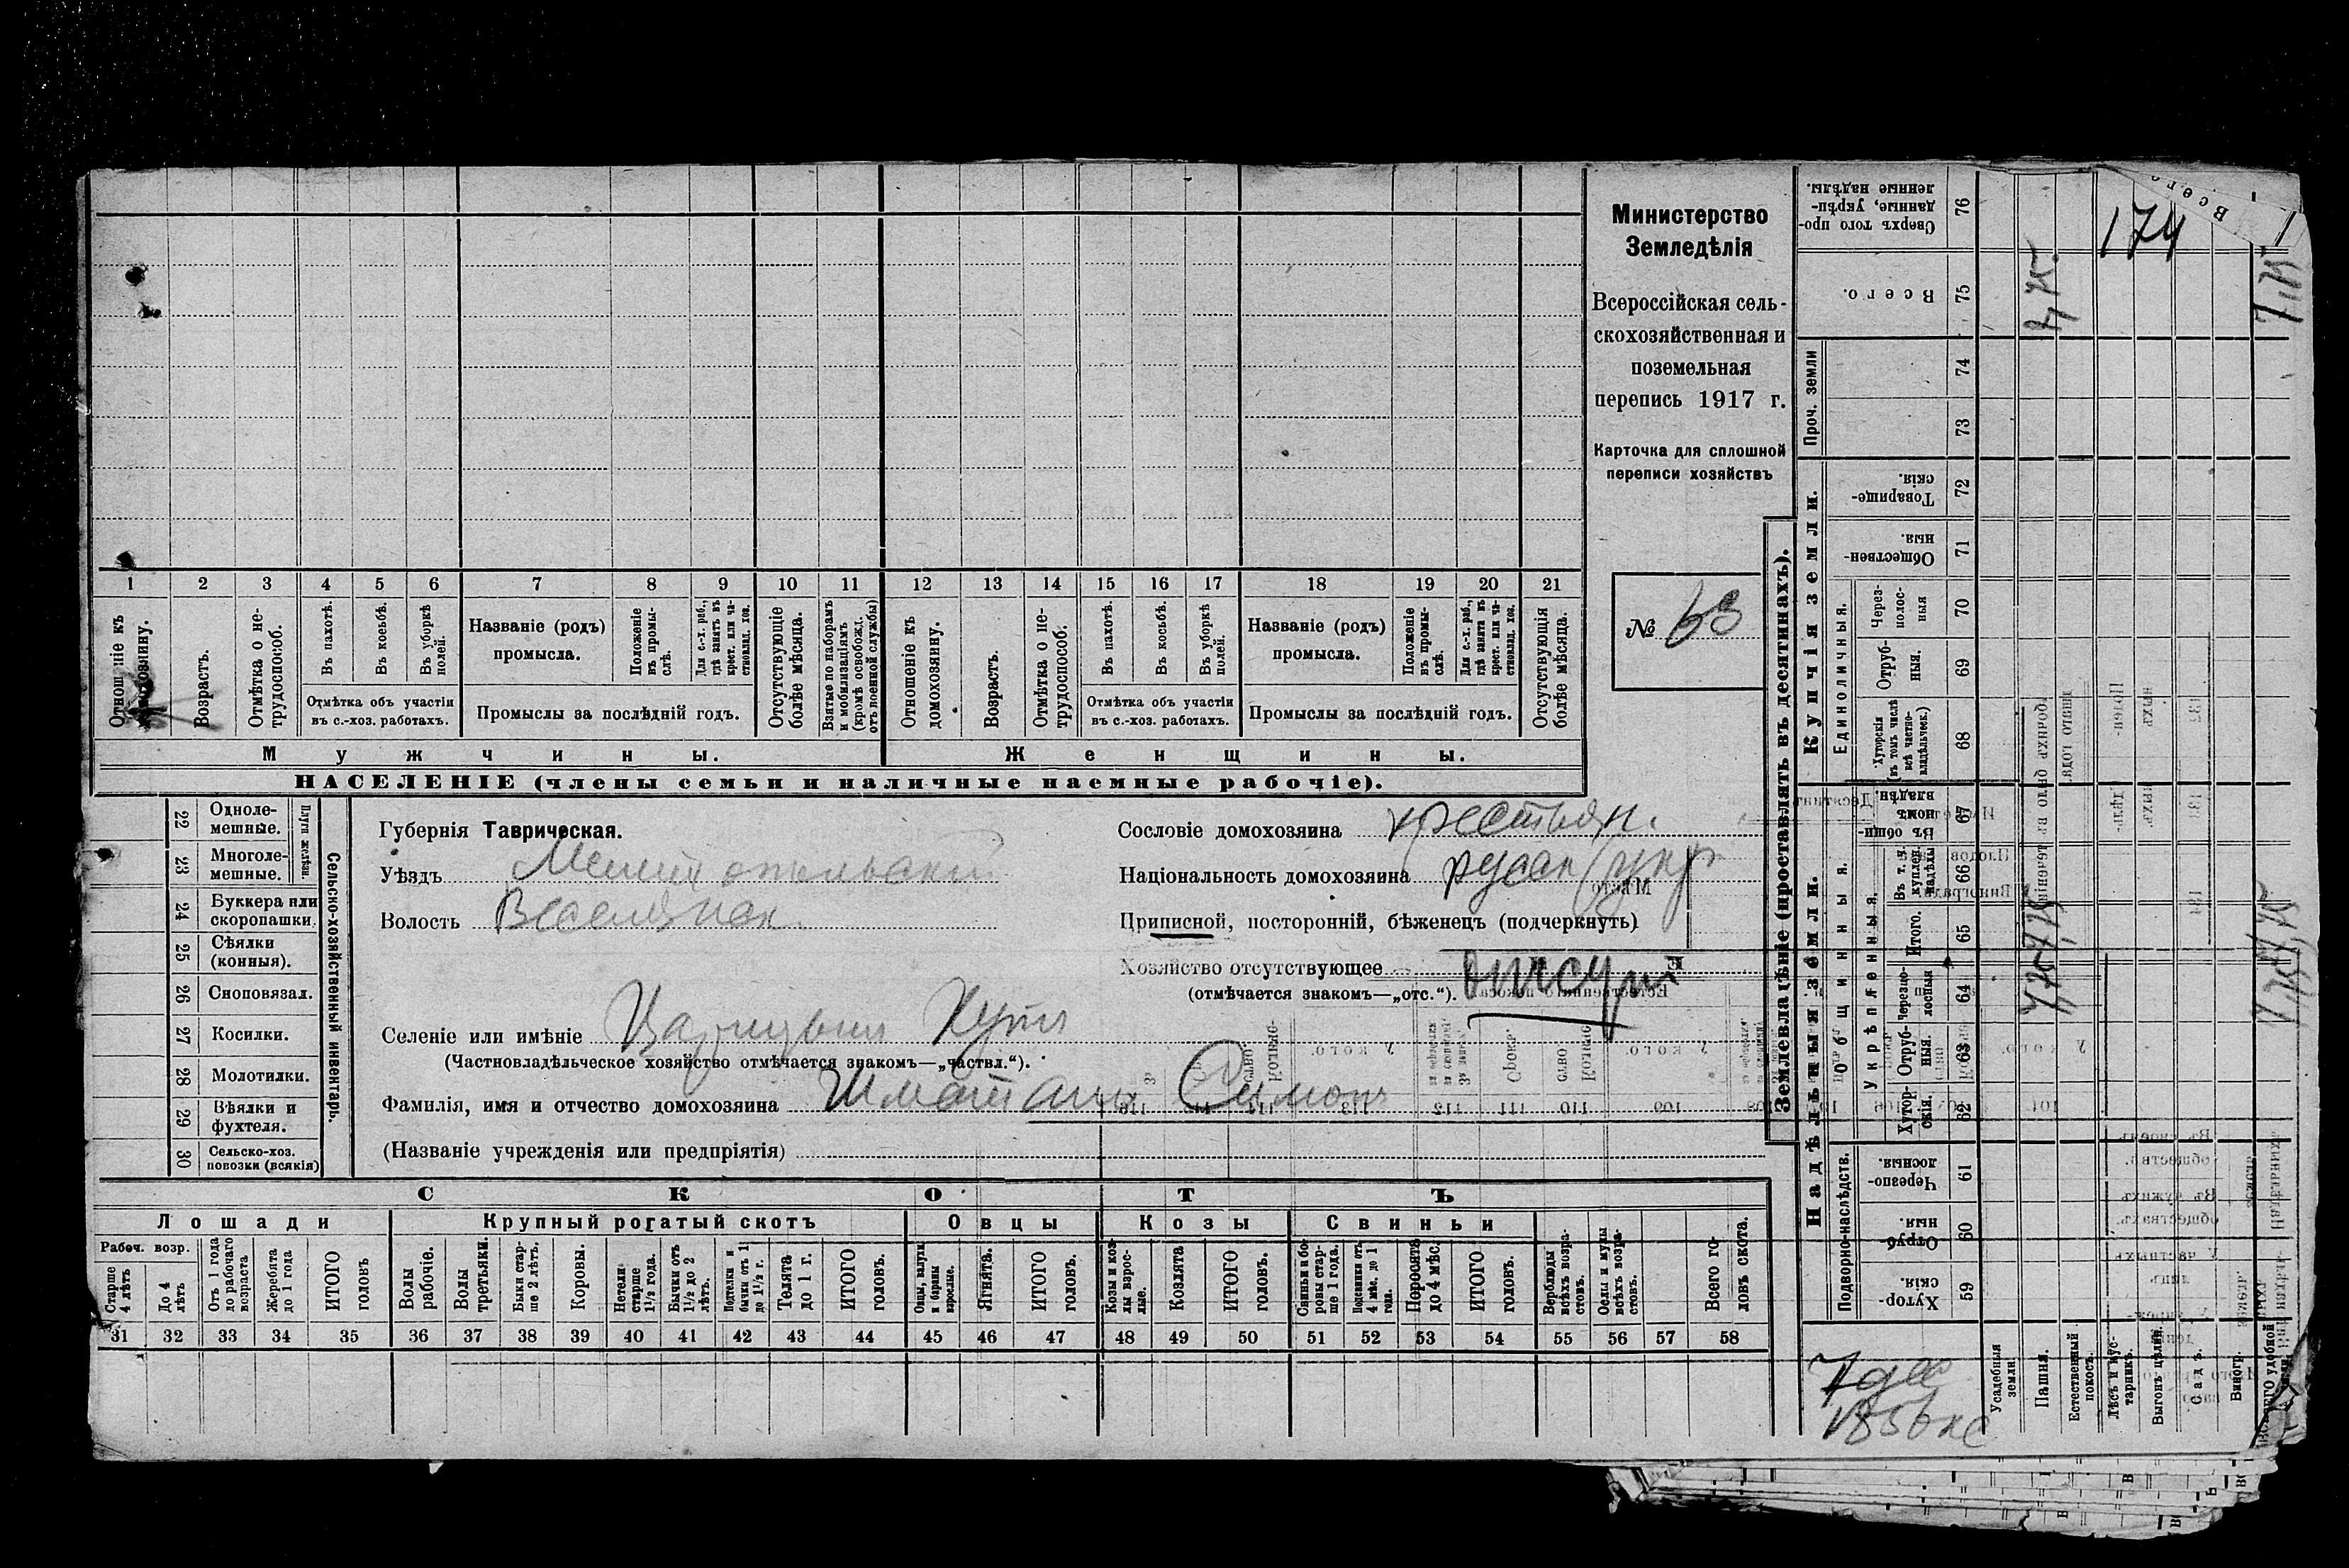 Министерство
Земледѣлія
Всероссійская сель-
скохозяйственная и
поземельная
перепись 1917 г.
Карточка для сплошной
переписи хозяйствъ
№ 63
174
1 2 3 4 5 6 7 8 9 10 11 12 13 14 15 16 17 18 19 20 21
Отношеніе къ домохозяину.
Возрастъ.
Отмѣтка о не-трудоспособ.
Въ пахотѣ.
Въ косьбѣ.
Въ уборкѣ полей.
Отмѣтка объ участіи
въ с.-хоз. работахъ.
Названіе (родъ)
промысла.
Положеніе въ промы-слѣ.
Для с.-х. раб., гдѣ занятъ въ крест. или ча-стновлад. хоз.
Промыслы за послѣдній годъ.
Отсутствующіе болѣе мѣсяца.
Взятые по наборамъ и мобилизаціямъ (кромѣ освобожд. отъ военной службы)
Отношеніе къ домохозяину.
Возрастъ.
Отмѣтка о не-трудоспособ.
Въ пахотѣ.
Въ косьбѣ.
Въ уборкѣ полей.
Отмѣтка объ участіи
въ с.-хоз. работахъ.
Названіе (родъ)
промысла.
Положеніе въ промы-слѣ.
Для с.-х. раб., гдѣ занята въ крест. или ча-стновлад. хоз.
Промыслы за послѣдній годъ.
Отсутствующія болѣе мѣсяца.
Мужчины.
Женщины.
НАСЕЛЕНІЕ (члены семьи и наличные наемные рабочіе).
22 Одноле-мешные.
23 Многоле-мешные.
Плуги желѣзн.
24 Буккера или скоропашки.
25 Сѣялки (конныя).
26 Сноповязал.
27 Косилки.
28 Молотилки.
29 Вѣялки и фухтеля.
30 Сельско-хоз. повозки (всякія)
Сельско-хозяйственный инвентарь.
Губернія Таврическая.
Уѣздъ Мелитопольскій
Волость Веселянск.
Селеніе или имѣніе Царицынъ Кутъ
(Частновладѣльческое хозяйство отмѣчается знакомъ—„частвл.“).
Фамилія, имя и отчество домохозяина Шматъ Симонъ
(Названіе учрежденія или предпріятія)
Сословіе домохозяина крестьян.
Національность домохозяина русск (укр
Приписной, посторонній, бѣженецъ (подчеркнуть)
Хозяйство отсутствующее отсут
(отмѣчается знакомъ—„отс.“).
СКОТЪ
Лошади
Крупный рогатый скотъ
Овцы
Козы
Свиньи
Рабоч. возр.
Старше 4 лѣтъ
До 4 лѣтъ
Отъ 1 года до рабочаго возраста
Жеребята до 1 года
ИТОГО головъ
Волы рабочіе.
Волы третьяки.
Быки стар-ше 2 лѣтъ.
Коровы.
Нетели старше 1½ года.
Бычки отъ 1½ до 2 лѣтъ.
Подтелки и бычки отъ 1 до 1½ г.
Телята до 1 г.
ИТОГО головъ.
Овцы, валухи и бараны взрослые.
Ягнята.
ИТОГО головъ.
Козы и коз-лы взрос-лые.
Козлята
ИТОГО головъ.
Свиньи и бо-ровы стар-ше 1 года.
Подсвинки отъ 4 мѣс. до 1 года.
Поросята до 4 мѣс.
ИТОГО головъ.
Верблюды всѣхъ возра-стовъ.
Ослы и мулы всѣхъ возра-стовъ.
Всего го-ловъ скота.
31 32 33 34 35 36 37 38 39 40 41 42 43 44 45 46 47 48 49 50 51 52 53 54 55 56 57 58
Землевладѣніе (проставлять въ десятинахъ).
Купчія земли.
Надѣльныя земли.
Проч. земли
Единоличныя.
Общинныя.
Укрѣпленныя.
Подворно-наслѣдств.
Сверхъ того про-данные, укрѣп-ленные надѣлы. 76
Всего. 75
74
73
Товарище-скія. 72
Обществен-ныя. 71
Через-полос-ныя 70
Отруб-ныя. 69
Хуторскія (въ томъ числѣ всѣ частно-владѣльческ.) 68
Въ общин-номъ владѣн. 67
Въ т. ч. куплен. надѣлы 66
Итого. 65
Черезпо-лосныя 64
Отруб-ныя. 63
Хутор-скія. 62
Черезпо-лосныя. 61
Отруб-ныя. 60
Хутор-скія. 59
Усадебныя земли.
Пашня.
Естественный покосъ.
Лѣсъ и кус-тарникъ.
Выгонъ цѣлин.
Садъ.
Виногр.
Всего удобной
7,75
7,75
7,75
7,75
7 дес
1850 кс